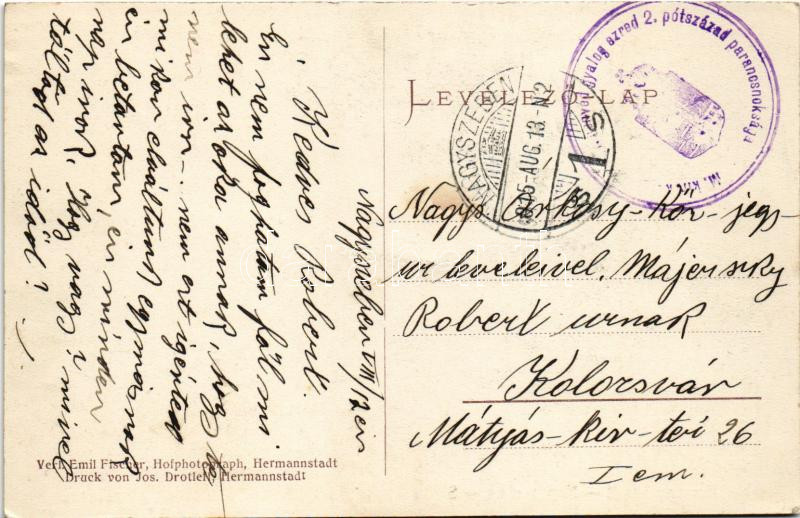 LEVELEZŐ-LAP
pótszázad parancsnoksága
NAGYSZEBEN
915 AUG. 13. N2
1 S
Nagyszeben VIII/12én
Kedves Robert.
Én nem foghatom föl mi
lehet az oka annak, hogy te
nem irsz. nem ezt igérted
mikor elváltunk egymástól
én betartom, én minden
nap irok. Hogy vagy? mivel
töltöd az idöt?
Nagys. Kör-jegy-
ur leveleivel, Májerszky
Robert urnak
Kolozsvár
Mátyás-kir-tér 26
I em.
Verl. Emil Fischer, Hofphotograph, Hermannstadt
Druck von Jos. Drotleff, Hermannstadt